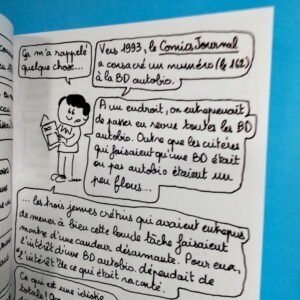 Ça m'a rappelé
quelque chose...
Vers 1993, le Comics Journal
a consacré un numéro (le 162)
à la BD autobio.
A un endroit, on entreprenait
de passer en revue toutes les BD
autobio. Outre que les critères
qui faisaient qu'une BD était
ou pas autobio étaient un
peu flous...
... les trois jeunes crétins qui avaient entrepris
de mener à bien cette lourde tâche faisaient
montre d'une candeur désarmante. Pour eux,
l'intérêt d'une BD autobio. dépendait de
l'intérêt de ce qui était raconté.
Ce qui est une idiotie